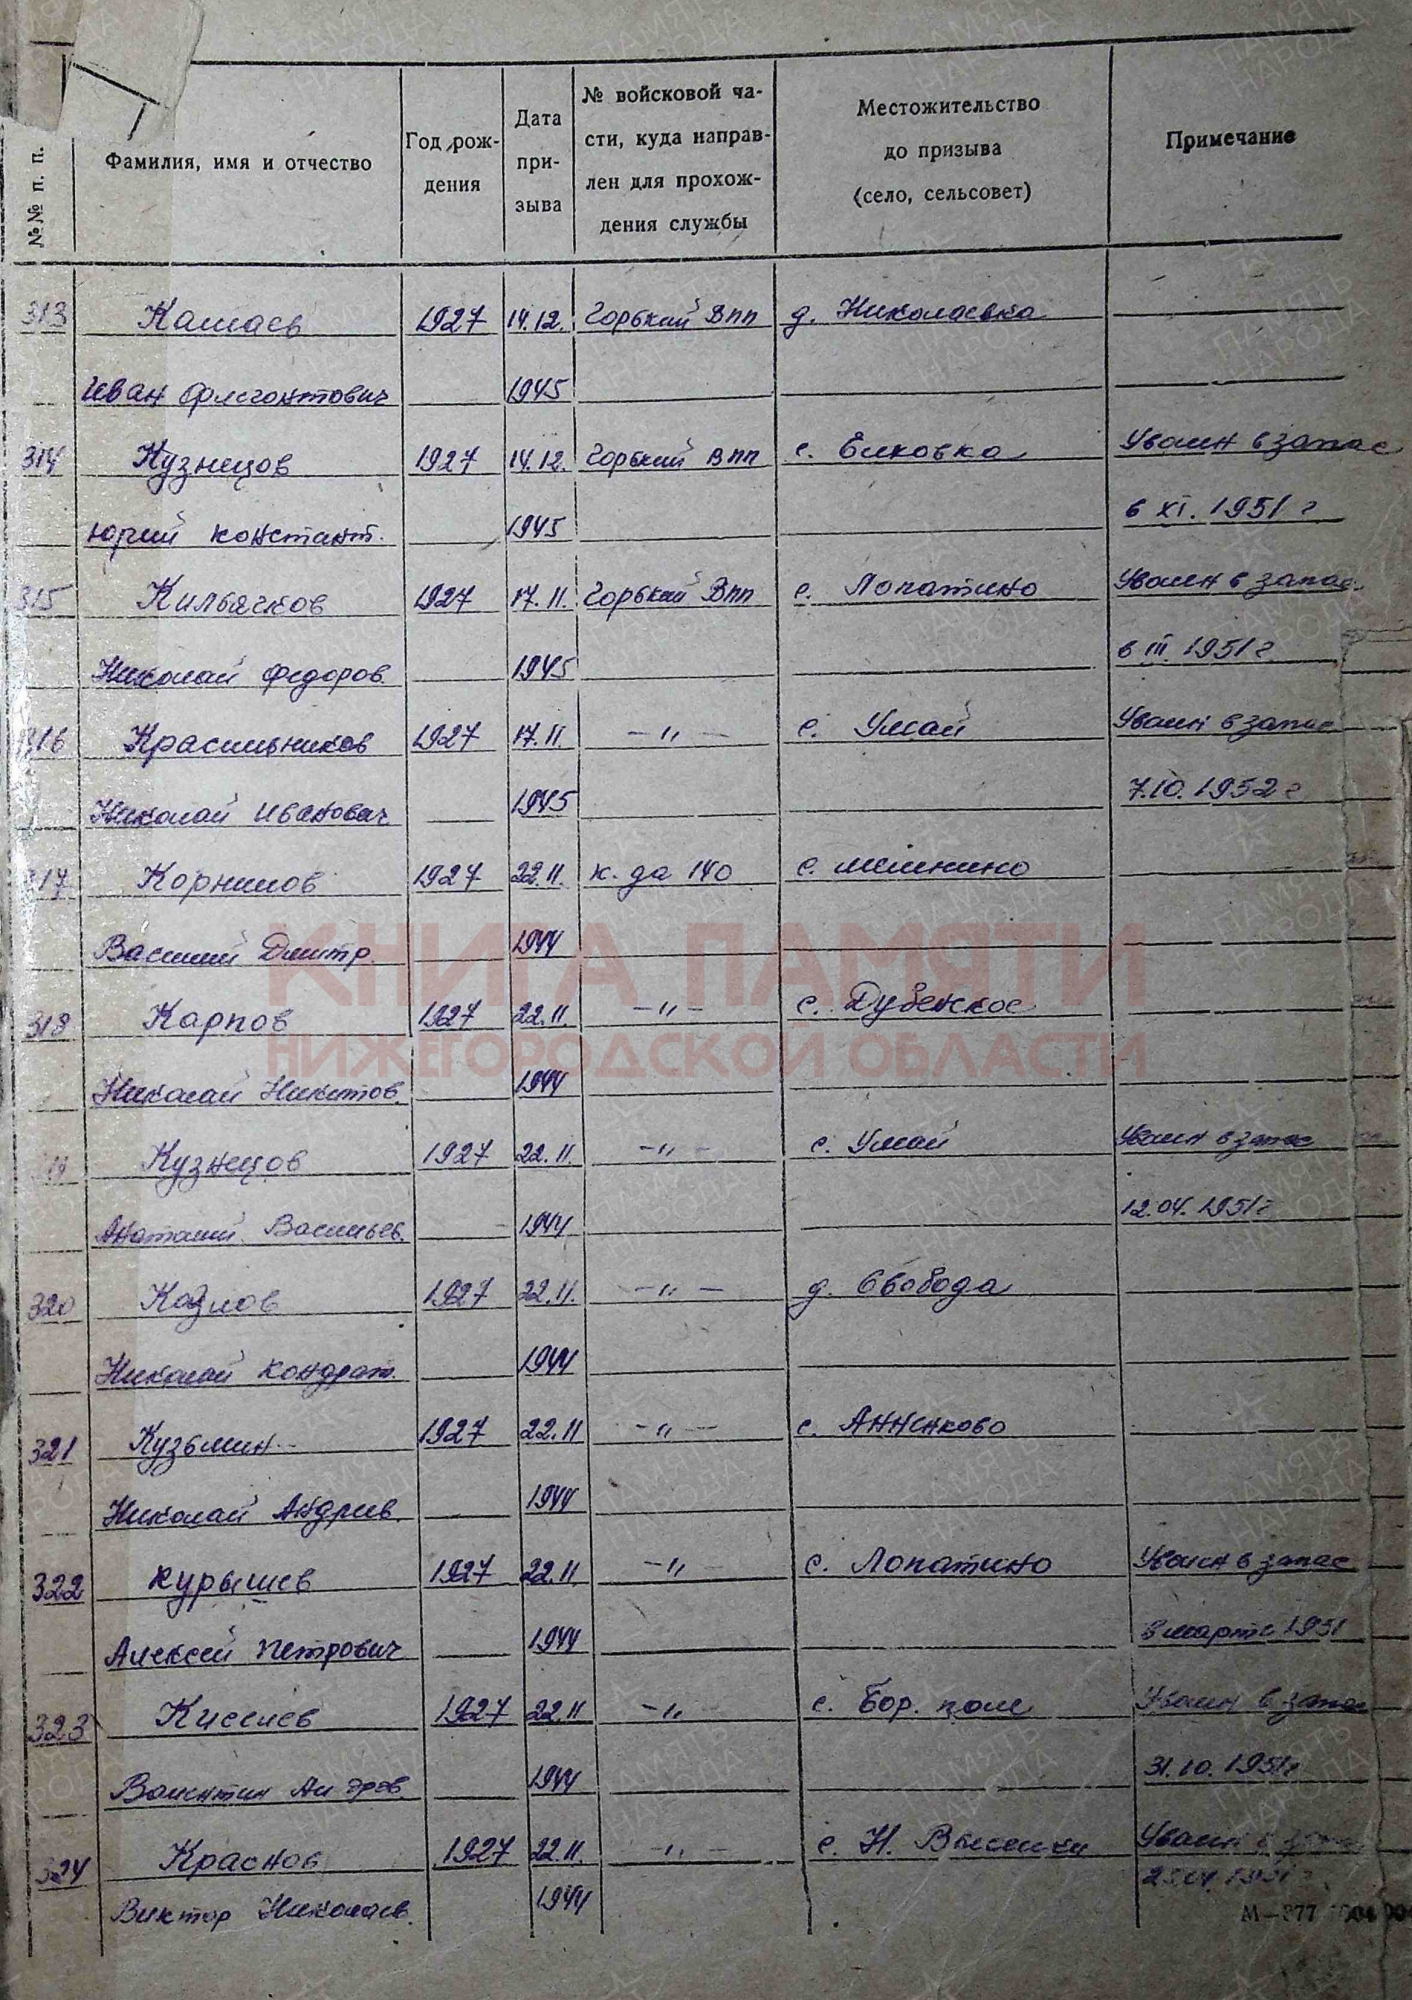 №№ п. п.
Фамилия, имя и отчество
Год рож-
дения
Дата
при-
зыва
№ войсковой ча-
сти, куда направ-
лен для прохож-
дения службы
Местожительство
до призыва
(село, сельсовет)
Примечание
313 Камаев 1927 14.12. Горький ВПП д. Николаевка
Иван Флегонтович 1945
314 Кузнецов 1927 14.12. Горький ВПП с. Елховка Уволен в запас
Юрий Констант. 1945 в XI. 1951 г
315 Кильячков 1927 17.11. Горький ВПП с. Лопатино Уволен в запас
Николай Федоров. 1945 в III. 1951 г
316 Красильников 1927 17.11 —"— с. Умай Уволен в запас
Николай Иванович 1945 7.10.1952 г
317 Корнилов 1927 22.11. к. да 140 с.
Василий Дмитр. 1944
КНИГА ПАМЯТИ
НИЖЕГОРОДСКОЙ ОБЛАСТИ
318 Карпов 1927 22.11. —"— с. Дубенское
Николай Никитов. 1944
Кузнецов 1927 22.11. —"— с. Умай Уволен в запас
Анатолий Васильев. 1944 12.04.1951 г
320 Козлов 1927 22.11. —"— д. Свобода
Николай Кондрат. 1944
321 Кузьмин 1927 22.11 —"— с. Анненково
Николай Андрев. 1944
322 Курышев 1927 22.11. —"— с. Лопатино Уволен в запас
Алексей Петрович 1944 в марте 1951
323 Киселев 1927 22.11 —"— с. Бор. поле Уволен в запас
Валентин Андрев 1944 31.10.1951 г
324 Краснов 1927 22.11. —"— с. Н. Выселки Уволен в запас
Виктор Николаев. 1944
М—377